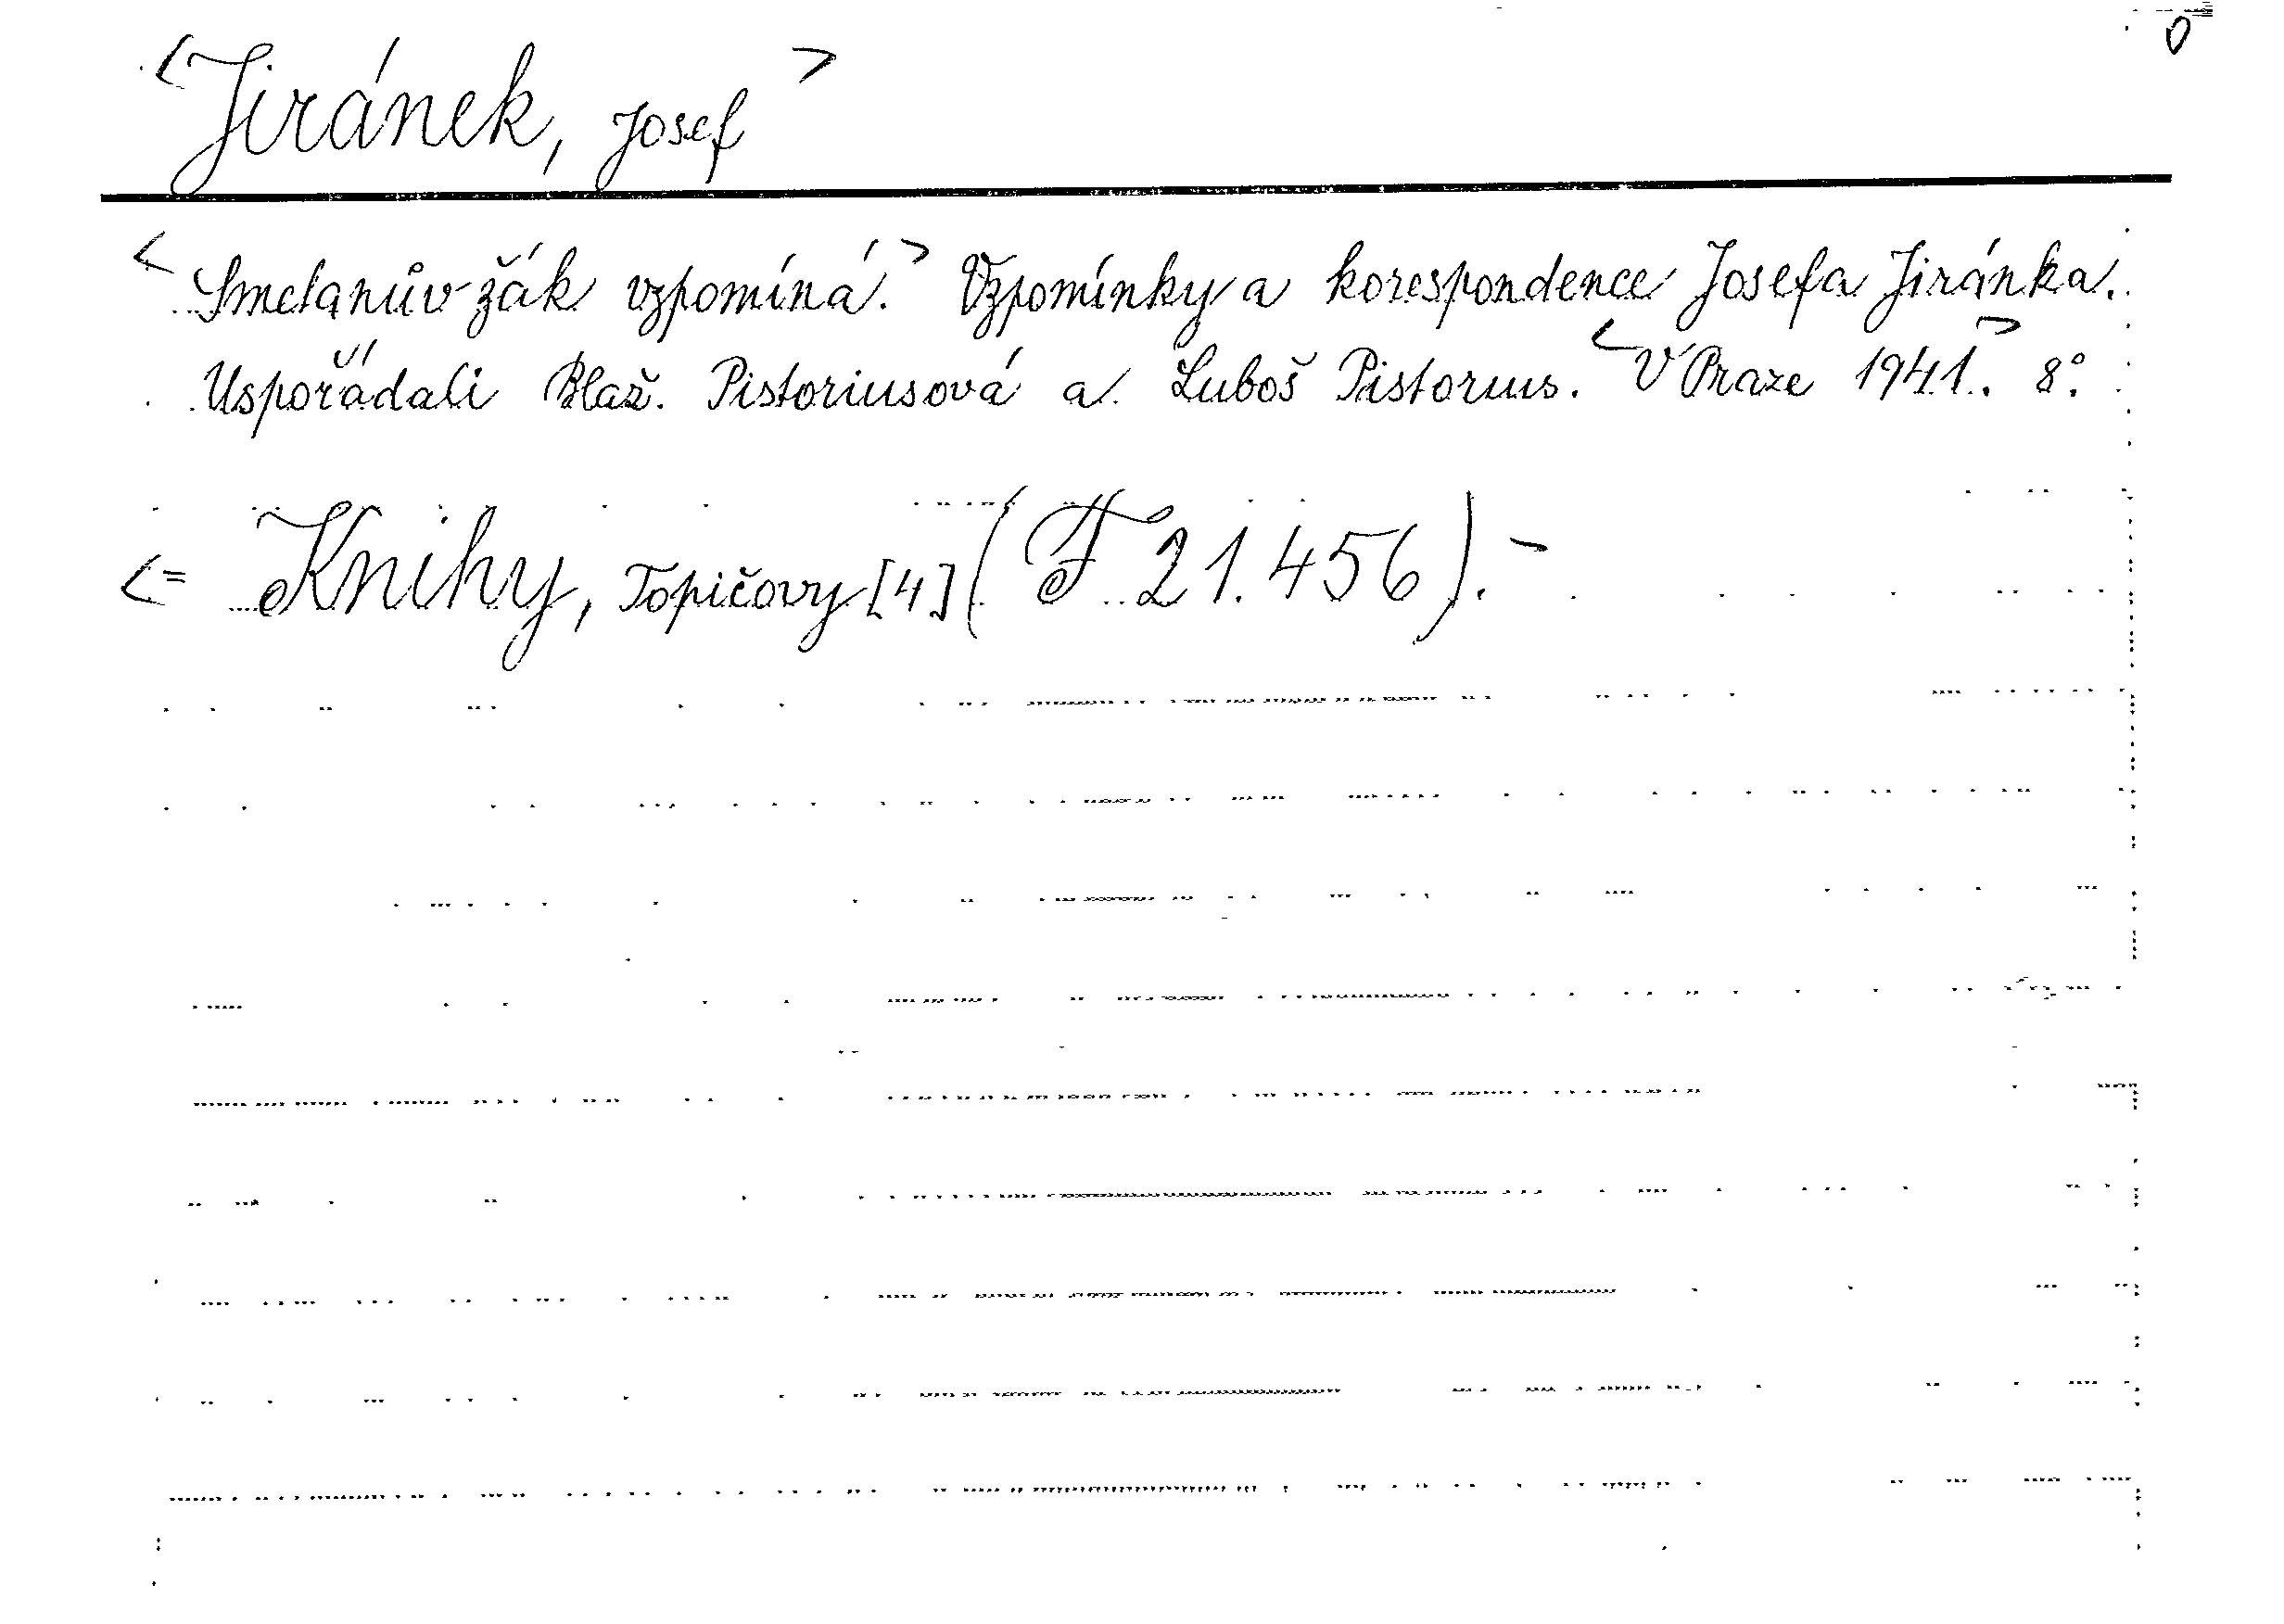 <Jiránek, Josef>
<Smetanův žák vzpomíná.> Vzpomínky a korespondence Josefa Jiránka.
Uspořádali Blaž. Pistoriusová a Luboš Pistorius. <V Praze 1941.> 8°.
<= Knihy, Topičovy [4] (F 21.456). -